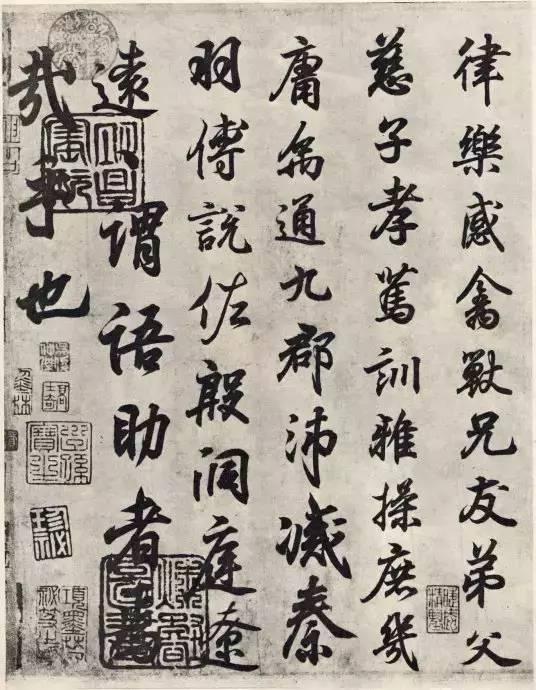 律樂感禽獸兄友弟父
慈子孝篤訓雅操庶幾
庸通九郡沛滅秦
羽傅說佐殷洞庭遼
遠謂語助者焉
哉乎也